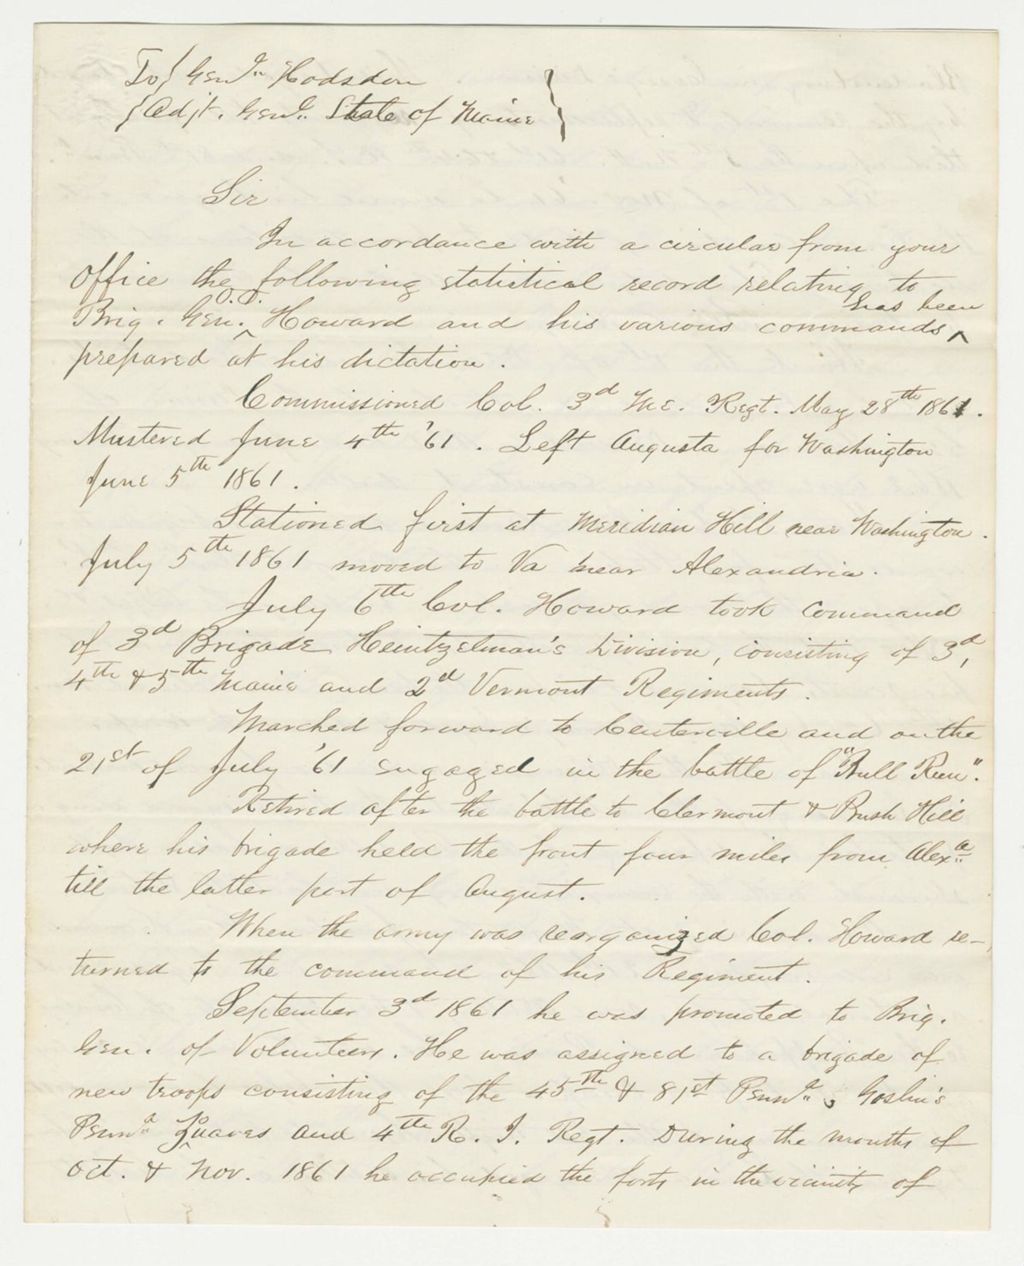 To} Genl. Hodsdon
{Adjt. Genl. State of Maine}
Sir
In accordance with a circular from your
Office the following statistical record relating to
Brig. Gen. ^O.O. Howard and his various commands ^has been
prepared at his dictation.
Commissioned Col. 3d Me. Regt. May 28th 1861.
Mustered June 4th '61. Left Augusta for Washington
June 5th 1861.
Stationed first at Meridian Hill near Washington.
July 5th 1861 moved to Va near Alexandria.
July 6th Col. Howard took command
of 3d Brigade Heintzelman's Division, consisting of 3d,
4th & 5th Maine and 2d Vermont Regiments.
Marched forward to Centerville and on the
21st of July '61 engaged in the battle of "Bull Run".
Retired after the battle to Clermont & Bush Hill
where his brigade held the front four miles from Alexa.
till the latter part of August.
When the army was reorganized Col. Howard re-
turned to the command of his Regiment.
September 3d 1861 he was promoted to Brig.
Gen. of Volunteers. He was assigned to a brigade of
new troops consisting of the 45th & 81st Penna., Goslin's
Penna. Zouaves and 4th R. I. Regt. During the months of
Oct. & Nov. 1861 he occupied the forts in the vicinity of